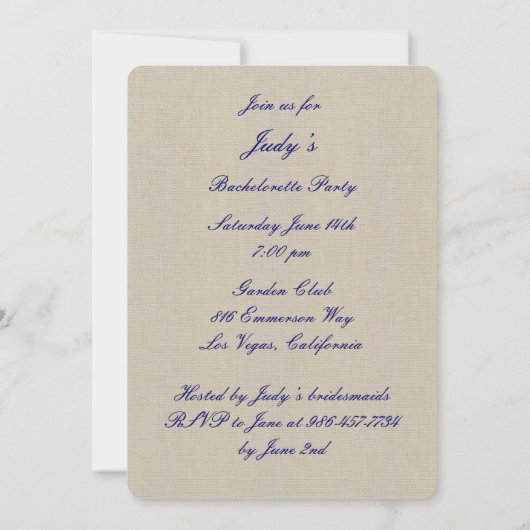 Join us for
Judy's
Bachelorette Party
Saturday June 14th
7:00 pm
Garden Club
816 Emmerson Way
Los Vegas, California
Hosted by Judy's bridesmaids
RSVP to Jane at 986-457-7734
by June 2nd